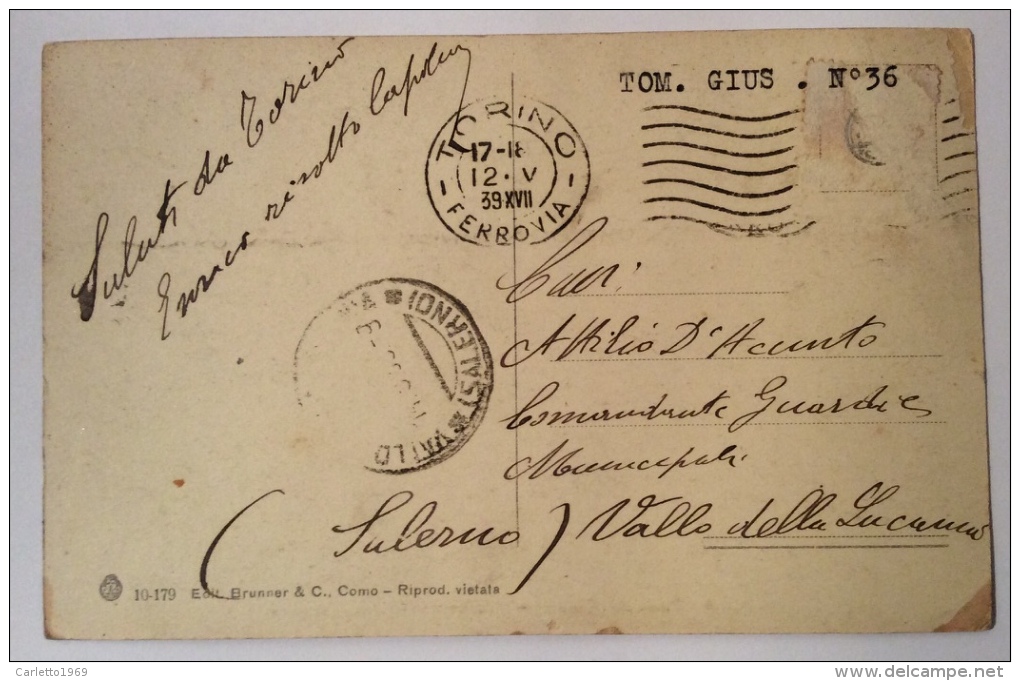 Saluti da Torino
Enrico
TOM. GIUS . Nº36
TORINO
17-18
12·V
39·XVII
FERROVIA
(SALERNO)
VALLO
Cav:
Attilio D'Acunto
Comandante Guardie
Municipali
(Salerno) Vallo della Lucania
10-179 Edit. Brunner & C., Como - Riprod. vietata
Carletto1969
www.delcampe.net